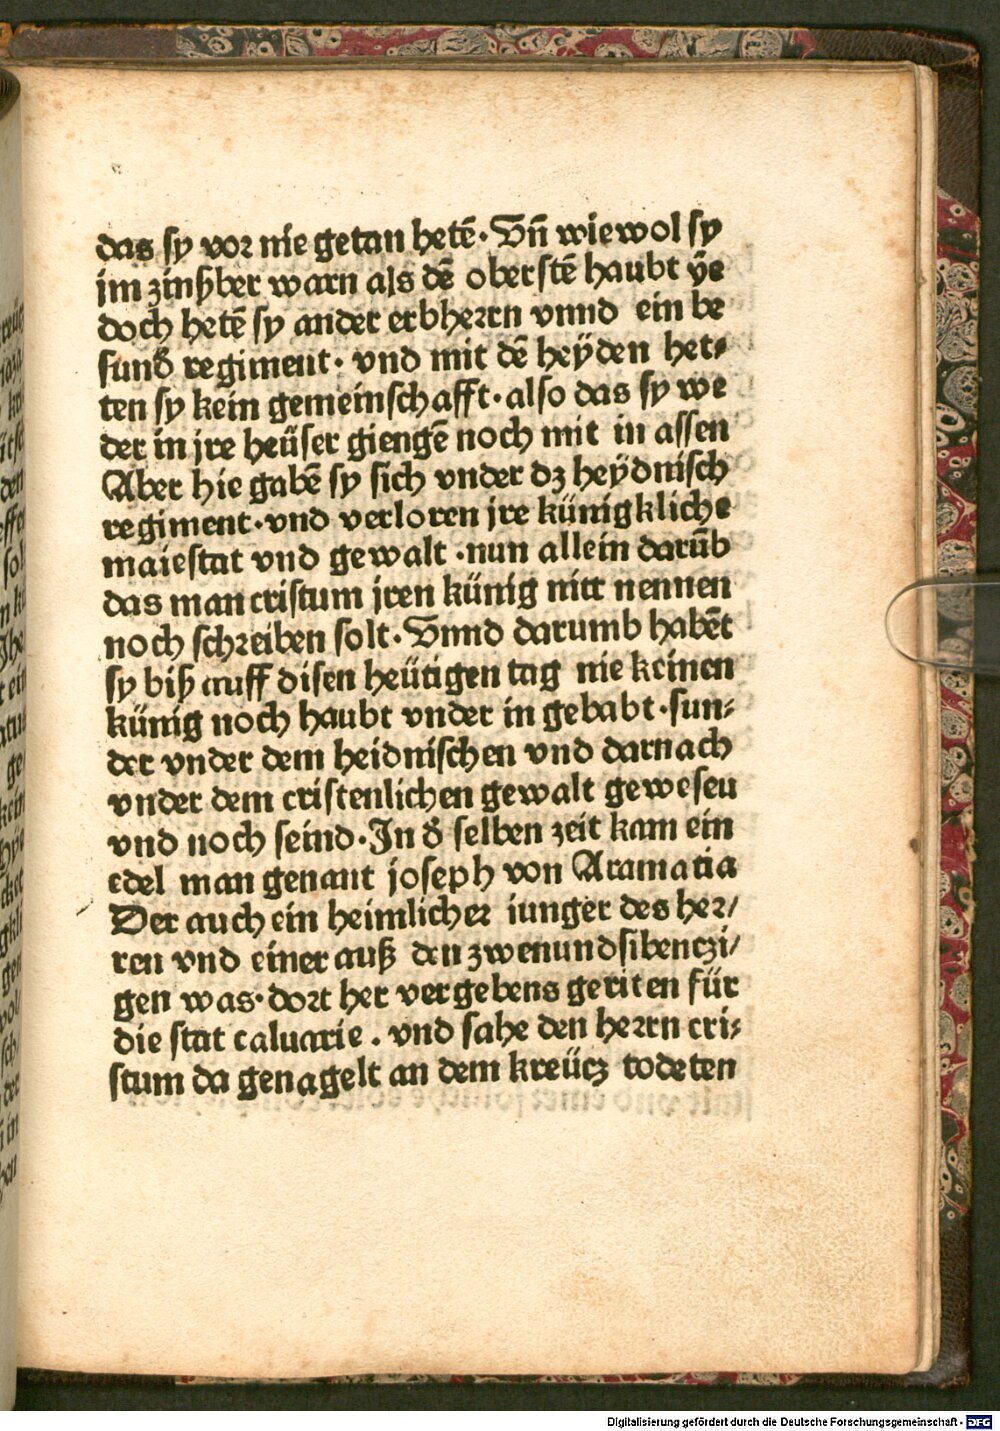 das sy vor nie getan hetē. Vn̄ wiewol sy
im zinßber warn als dē oberstē haubt ye
doch hetē sy ander erbherrn vnnd ein be
sund̛ regiment. vnd mit dē heÿden het⸗
ten sy kein gemeinschafft. also das sy we
der in jre heüser giengē noch mit in assen
Aber hie gabē sy sich vnder dz heÿdnisch
regiment. vnd verloren jre künigkliche
maiestat vnd gewalt. nun allein darūb
das man cristum jren künig nitt nennen
noch schreiben solt. Vnnd darumb habēt
sy biß auff disen heütigen tag nie keinen
künig noch haubt vnder in gehabt. sun⸗
der vnder dem heidnischen vnd darnach
vnder dem cristenlichen gewalt gewesen
vnd noch seind. In d̛ selben zeit kam ein
edel man genant joseph von Aramatia
Der auch ein heimlicher iunger des her/
ren vnd einer auß den zwenundsibenczi/
gen was. dort her vergebens geriten für
die stat caluarie. vnd sahe den herrn cri⸗
stum da genagelt an dem kreücz todeten
Digitalisierung gefördert durch die Deutsche Forschungsgemeinschaft - DFG